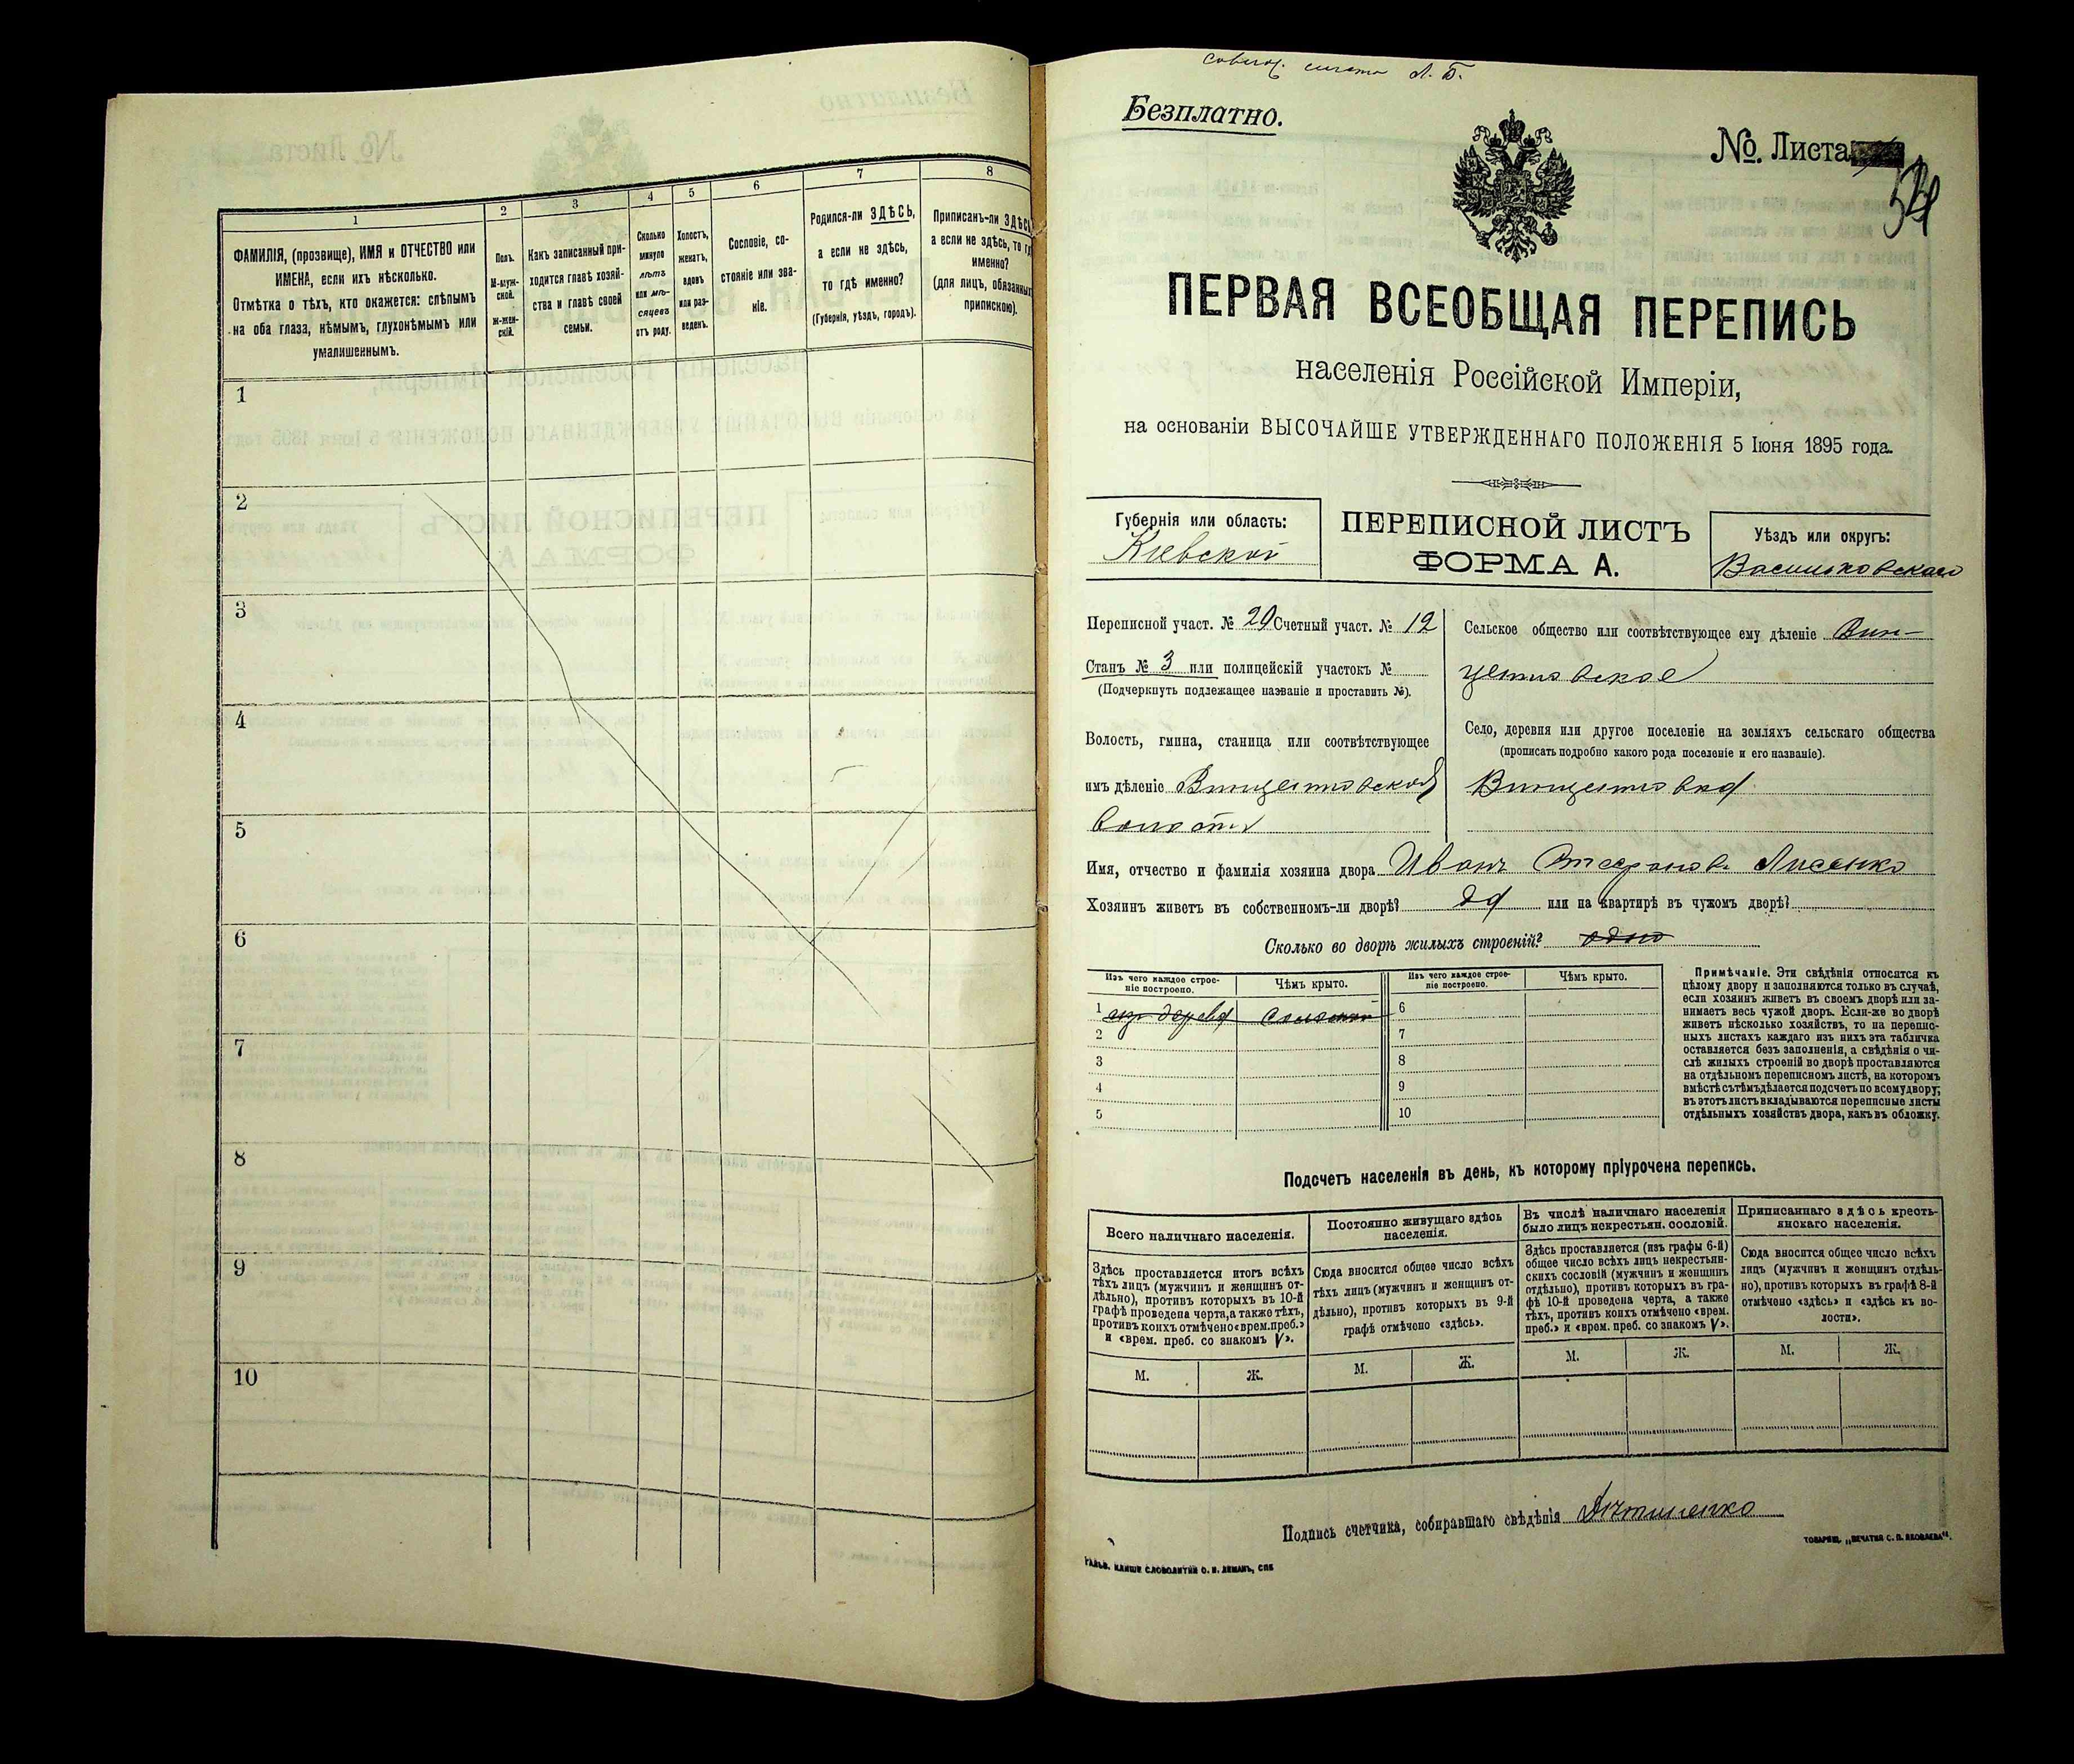 1
2
3
4
5
6
7
8
ФАМИЛІЯ, (прозвище), ИМЯ и ОТЧЕСТВО или
ИМЕНА, если ихъ нѣсколько.
Отмѣтка о тѣхъ, кто окажется: слѣпымъ
на оба глаза, нѣмымъ, глухонѣмымъ или
умалишеннымъ.
Полъ.
М-муж-
ской.
Ж-жен-
скій.
Какъ записанный при-
ходится главѣ хозяй-
ства и главѣ своей
семьи.
Сколько
минуло
лѣтъ
или мѣ-
сяцевъ
отъ роду.
Холостъ,
женатъ,
вдовъ
или раз-
веденъ.
Сословіе, со-
стояніе или зва-
ніе.
Родился-ли ЗДѢСЬ,
а если не здѣсь,
то гдѣ именно?
(Губернія, уѣздъ, городъ).
Приписанъ-ли ЗДѢСЬ,
а если не здѣсь, то гдѣ
именно?
(для лицъ, обязанныхъ
припискою).
1
2
3
4
5
6
7
8
9
10
Л. Б.
Безплатно.
№. Листа
ПЕРВАЯ ВСЕОБЩАЯ ПЕРЕПИСЬ
населенія Россійской Имперіи,
на основаніи ВЫСОЧАЙШЕ УТВЕРЖДЕННАГО ПОЛОЖЕНІЯ 5 Іюня 1895 года.
Губернія или область:
Кіевской
ПЕРЕПИСНОЙ ЛИСТЪ
ФОРМА А.
Уѣздъ или округъ:
Васильковскаго
Переписной участ. № 20 Счетный участ. № 12
Станъ № 3 или полицейскій участокъ №
(Подчеркнуть подлежащее названіе и проставить №).
Волость, гмина, станица или соотвѣтствующее
имъ дѣленіе Винцентовской
волости
Сельское общество или соотвѣтствующее ему дѣленіе Вин-
центовское
Село, деревня или другое поселеніе на земляхъ сельскаго общества
(прописать подробно какого рода поселеніе и его названіе).
Винцентовка
Имя, отчество и фамилія хозяина двора Иванъ Стефановъ Лисенко
Хозяинъ живетъ въ собственномъ-ли дворѣ? да или на квартирѣ въ чужомъ дворѣ?
Сколько во дворѣ жилыхъ строеній? одно
Изъ чего каждое строе-
ніе построено.
Чѣмъ крыто.
Изъ чего каждое строе-
ніе построено.
Чѣмъ крыто.
1 изъ дерева соломой 6
2 7
3 8
4 9
5 10
Примѣчаніе. Эти свѣдѣнія относятся къ
цѣлому двору и заполняются только въ случаѣ,
если хозяинъ живетъ въ своемъ дворѣ или за-
нимаетъ весь чужой дворъ. Если-же во дворѣ
живетъ нѣсколько хозяйствъ, то на перепис-
ныхъ листахъ каждаго изъ нихъ эта табличка
оставляется безъ заполненія, а свѣдѣнія о чи-
слѣ жилыхъ строеній во дворѣ проставляются
на отдѣльномъ переписномъ листѣ, на которомъ
вмѣстѣ съ тѣмъ дѣлается подсчетъ по всему двору;
въ этотъ листъ вкладываются переписные листы
отдѣльныхъ хозяйствъ двора, какъ въ обложку.
Подсчетъ населенія въ день, къ которому пріурочена перепись.
Всего наличнаго населенія.
Здѣсь проставляется итогъ всѣхъ
тѣхъ лицъ (мужчинъ и женщинъ от-
дѣльно), противъ которыхъ въ 10-й
графѣ проведена черта, а также тѣхъ,
противъ коихъ отмѣчено «врем. преб.»
и «врем. преб. со знакомъ V».
Постоянно живущаго здѣсь
населенія.
Сюда вносится общее число всѣхъ
тѣхъ лицъ (мужчинъ и женщинъ от-
дѣльно), противъ которыхъ въ 9-й
графѣ отмѣчено «здѣсь».
Въ числѣ наличнаго населенія
было лицъ некрестьян. сословій.
Здѣсь проставляется (изъ графы 6-й)
общее число всѣхъ лицъ некрестьян-
скихъ сословій (мужчинъ и женщинъ
отдѣльно), противъ которыхъ въ гра-
фѣ 10-й проведена черта, а также
тѣхъ, противъ коихъ отмѣчено «врем.
преб.» и «врем. преб. со знакомъ V».
Приписаннаго здѣсь кресть-
янскаго населенія.
Сюда вносится общее число всѣхъ
лицъ (мужчинъ и женщинъ отдѣль-
но), противъ которыхъ въ графѣ 8-й
отмѣчено «здѣсь» и «здѣсь къ во-
лости».
М. Ж. М. Ж. М. Ж. М. Ж.
Подпись счетчика, собиравшаго свѣдѣнія
ГАЛЬВ. КЛИШЕ СЛОВОЛИТНИ О. И. ЛЕМАНЪ, СПБ
ТОВАРИЩ. „ПЕЧАТНЯ С. П. ЯКОВЛЕВА“.